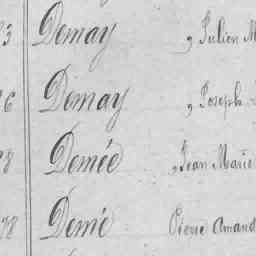 3 Demay , Julien M
6 Demay , Joseph
8 Demée , Jean Marie
78 Demé Pierre Amand